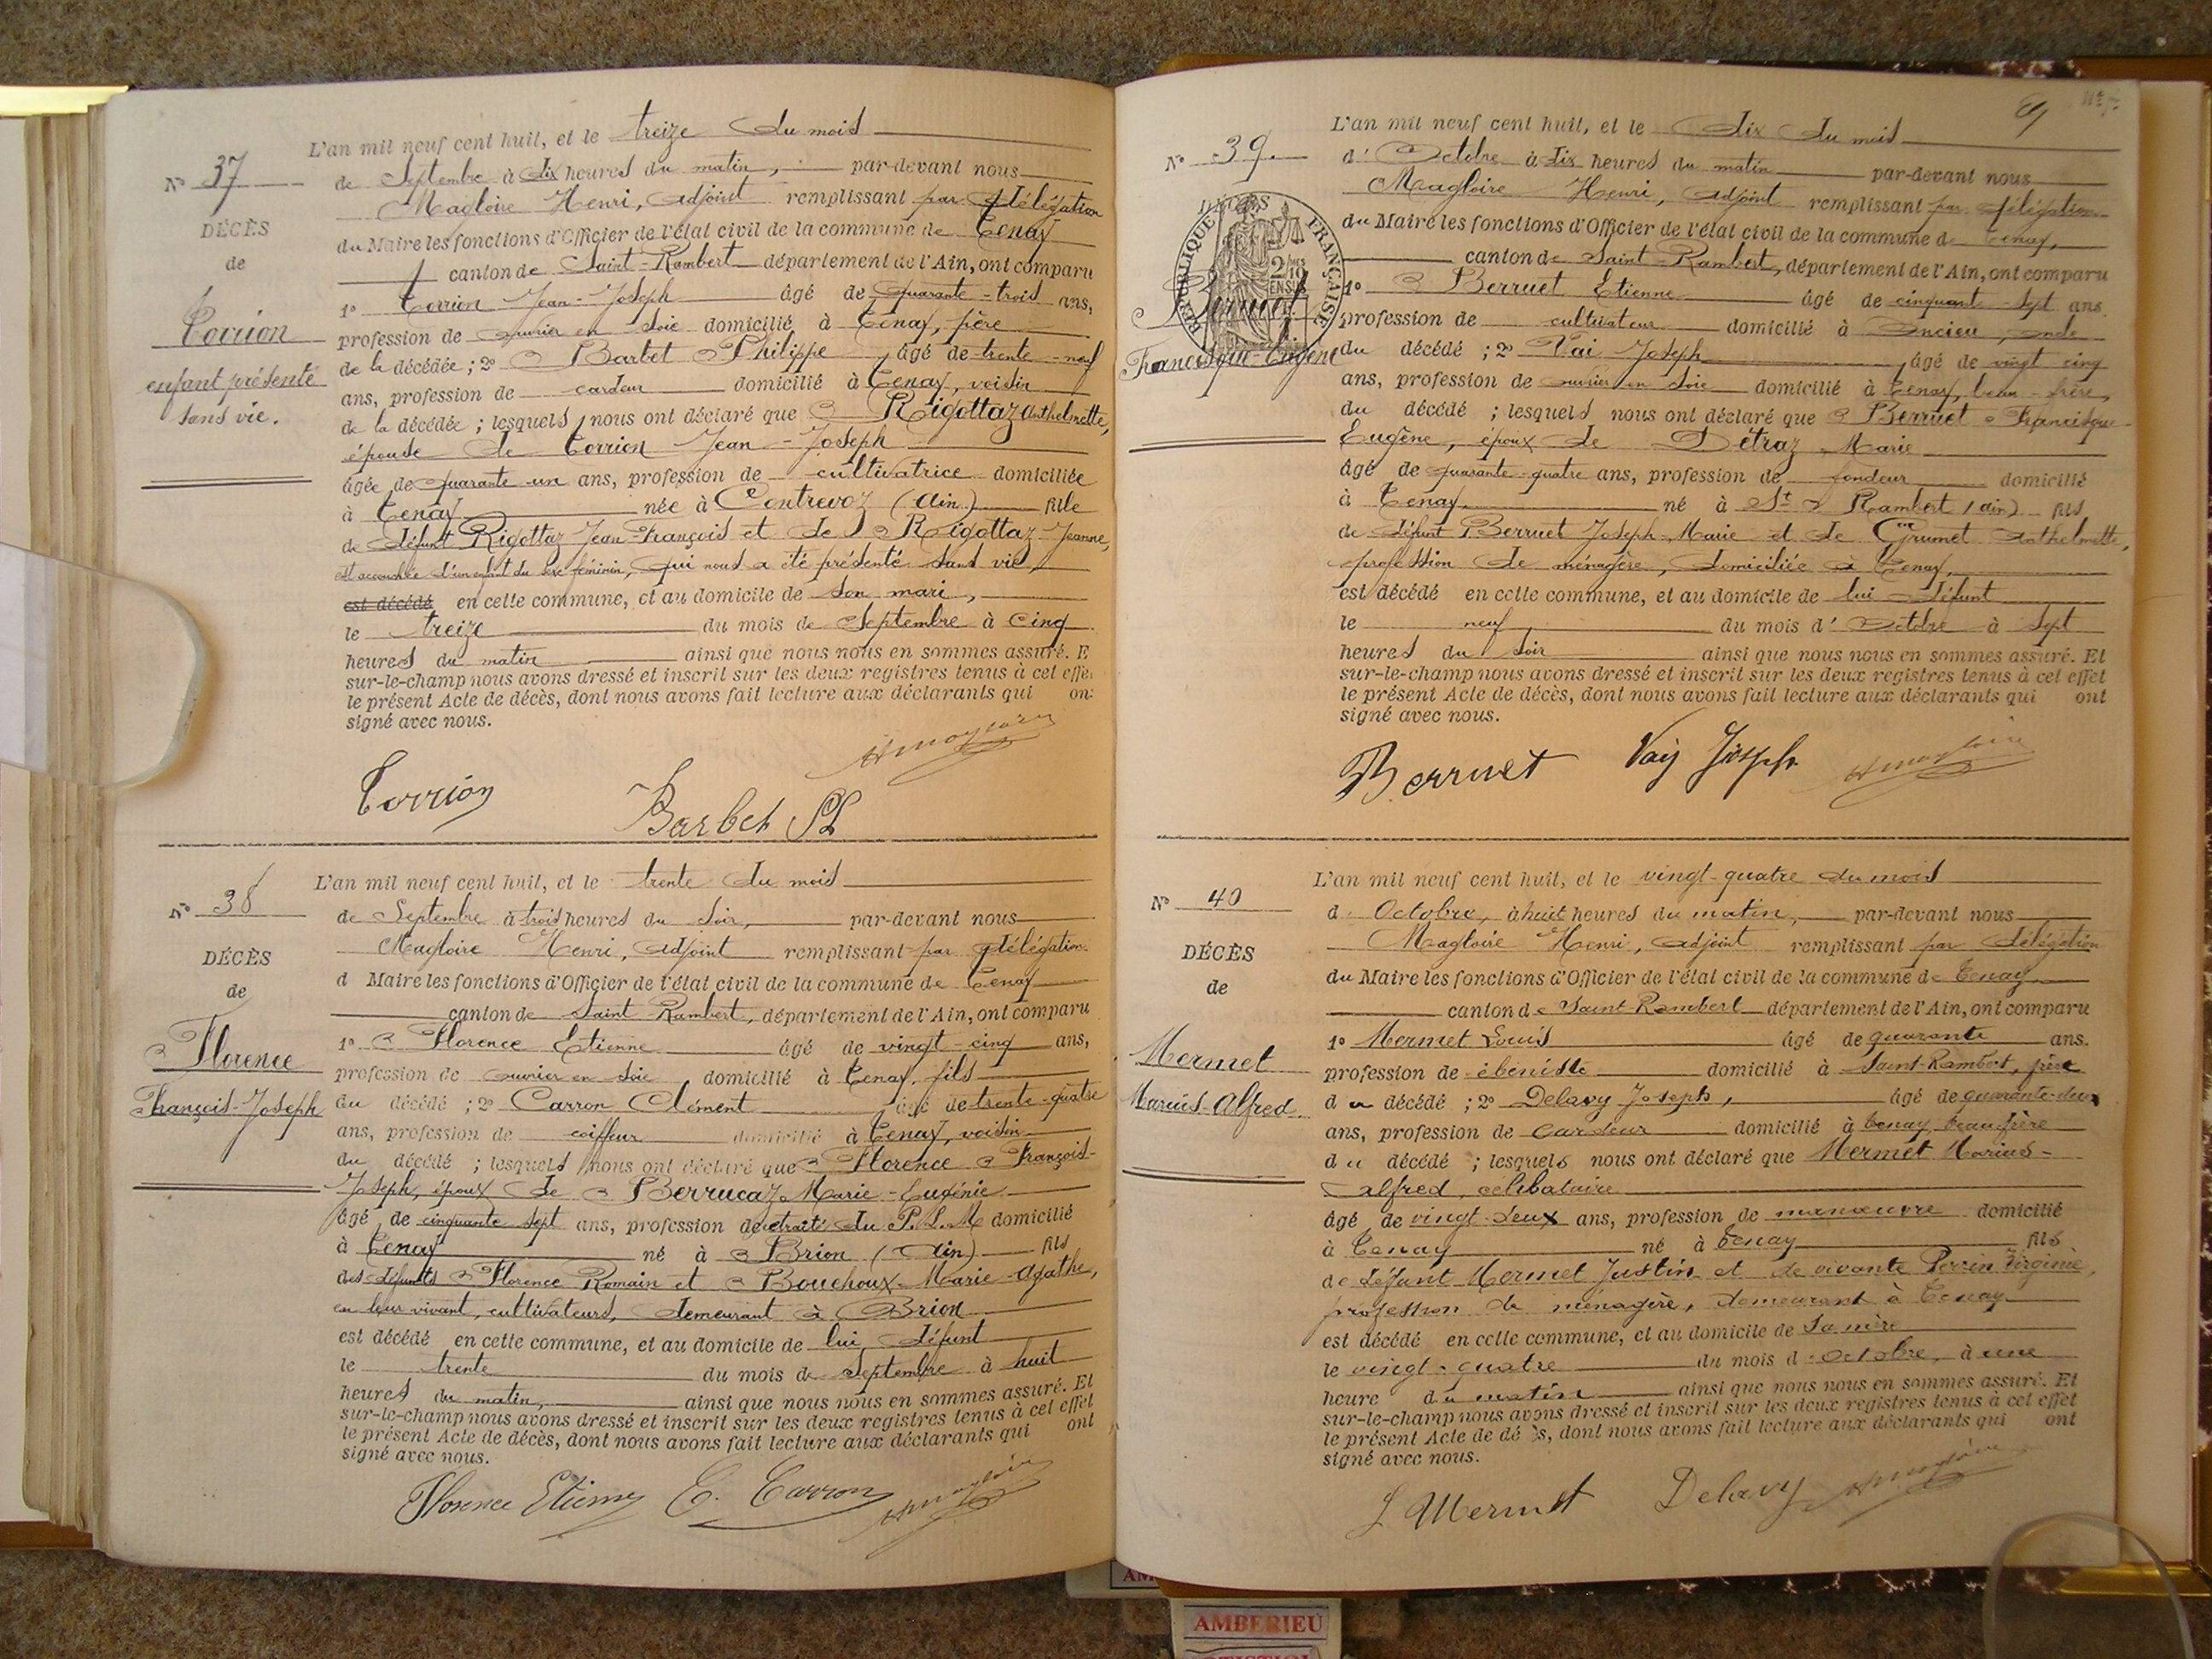 L'an mil neuf cent huit, et le treize du mois
N° 37
de Septembre à dix heures du matin, par-devant nous
Magloire Henri, adjoint remplissant par délégation
DÉCÈS
du Maire les fonctions d'Officier de l'état civil de la commune de Tenay
de
canton de Saint-Rambert département de l'Ain, ont comparu
1° Torrion Jean-Joseph âgé de quarante-trois ans,
Torrion
profession de ouvrier en soie domicilié à Tenay, père
de la décédée ; 2° Barbet Philippe âgé de trente-neuf
enfant présenté
ans, profession de cardeur domicilié à Tenay, voisin
sans vie.
de la décédée ; lesquels nous ont déclaré que Rigottaz Anthelmette,
épouse de Torrion Jean-Joseph
âgée de quarante-un ans, profession de cultivatrice domiciliée
à Tenay née à Contrevoz (Ain) fille
de défunt Rigottaz Jean-François et de Rigottaz Jeanne,
est accouchée d'un enfant du sexe féminin, qui nous a été présenté sans vie,
est décédé en cette commune, et au domicile de son mari,
le treize du mois de Septembre à cinq
heures du matin ainsi que nous nous en sommes assuré. E
sur-le-champ nous avons dressé et inscrit sur les deux registres tenus à cet effe
le présent Acte de décès, dont nous avons fait lecture aux déclarants qui on
signé avec nous.
Torrion
Barbet Ph
H Magloire
L'an mil neuf cent huit, et le trente du mois
N° 38
de Septembre à trois heures du soir, par-devant nous
Magloire Henri, adjoint remplissant par délégation
DÉCÈS
d Maire les fonctions d'Officier de l'état civil de la commune de Tenay
de
canton de Saint-Rambert, département de l'Ain, ont comparu
1° Florence Etienne âgé de vingt-cinq ans,
Florence
profession de ouvrier en soie domicilié à Tenay, fils
François-Joseph
du décédé ; 2° Carron Clément âgé de trente-quatre
ans, profession de coiffeur domicilié à Tenay, voisin
du décédé ; lesquels nous ont déclaré que Florence François-
Joseph, époux de Berrucaz Marie-Eugénie
âgé de cinquante sept ans, profession de retraité du P.L.M domicilié
à Tenay né à Brion (Ain) fils
des défunts Florence Romain et Bouchoux Marie-Agathe,
en leur vivant, cultivateurs, demeurant à Brion
est décédé en cette commune, et au domicile de lui défunt
le trente du mois de Septembre à huit
heures du matin, ainsi que nous nous en sommes assuré. Et
sur-le-champ nous avons dressé et inscrit sur les deux registres tenus à cet effet
le présent Acte de décès, dont nous avons fait lecture aux déclarants qui ont
signé avec nous.
Florence Etienne C. Carron H Magloire
L'an mil neuf cent huit, et le dix du mois
N° 39.
d' Octobre à dix heures du matin par-devant nous
Magloire Henri, adjoint remplissant par délégation
DÉCÈS
RÉPUBLIQUE FRANÇAISE
du Maire les fonctions d'Officier de l'état civil de la commune de Tenay,
canton de Saint-Rambert, département de l'Ain, ont comparu
Berruet
1° Berruet Etienne âgé de cinquante-sept ans
profession de cultivateur domicilié à Oncieu, oncle
Francisque-Eugène
du décédé ; 2° Vai Joseph âgé de vingt cinq
ans, profession de ouvrier en soie domicilié à Tenay, beau-frère,
du décédé ; lesquels nous ont déclaré que Berruet Francisque-
Eugène, époux de Détraz Marie
âgé de quarante-quatre ans, profession de fondeur domicilié
à Tenay né à St Rambert (Ain) fils
de défunt Berruet Joseph-Marie et de Grumet Anthelmette,
profession de ménagère, domiciliée à Tenay,
est décédé en cette commune, et au domicile de lui défunt
le neuf du mois d' Octobre à sept
heures du soir ainsi que nous nous en sommes assuré. Et
sur-le-champ nous avons dressé et inscrit sur les deux registres tenus à cet effet
le présent Acte de décès, dont nous avons fait lecture aux déclarants qui ont
signé avec nous.
Berruet Vaij Joseph H Magloire
L'an mil neuf cent huit, et le vingt-quatre du mois
N° 40
d' Octobre, à huit heures du matin, par-devant nous
Magloire Henri, adjoint remplissant par délégation
DÉCÈS
du Maire les fonctions d'Officier de l'état civil de la commune de Tenay
de
canton de Saint Rambert département de l'Ain, ont comparu
1° Mermet Louis âgé de quarante ans.
Mermet
profession de ébéniste domicilié à Saint-Rambert, frère
Marius-Alfred
du décédé ; 2° Delavy Joseph, âgé de quarante-deux
ans, profession de cardeur domicilié à Tenay, beau frère
du décédé ; lesquels nous ont déclaré que Mermet Marius-
alfred, celibataire
âgé de vingt-deux ans, profession de manœuvre domicilié
à Tenay né à Tenay fils
de défunt Mermet Justin et de vivante Perrin Virginie,
profession de ménagère, demeurant à Tenay
est décédé en cette commune, et au domicile de sa mère
le vingt-quatre du mois d'octobre, à une
heure du matin ainsi que nous nous en sommes assuré. Et
sur-le-champ nous avons dressé et inscrit sur les deux registres tenus à cet effet
le présent Acte de dé s, dont nous avons fait lecture aux déclarants qui ont
signé avec nous.
L Mermet Delavy H Magloire
AMBERIEU